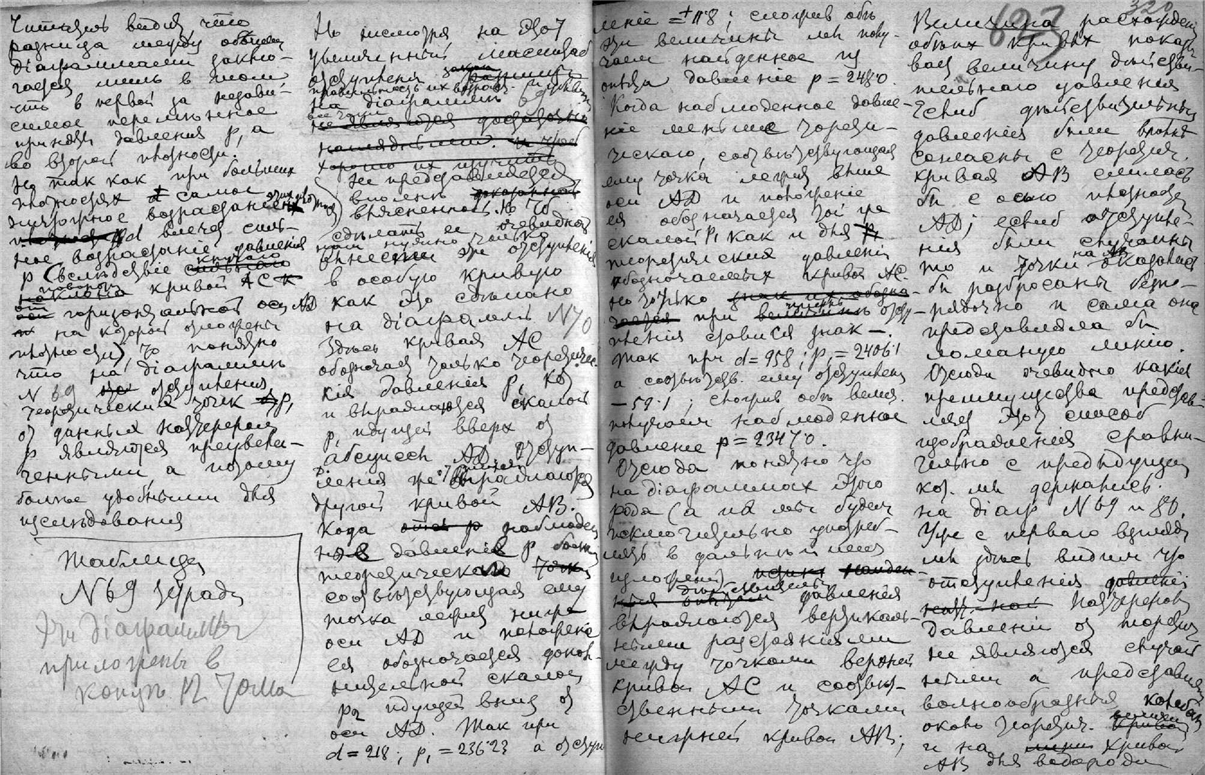 Читатель видит что
разница между обоими
діаграммами заклю-
чается лишь в том
что в первой за незави-
симое переменное
принято давления p, а
во второй плотности.
Но так как при больших
плотностях самое
ничтожное возрастание
d влечет силь-
ное возрастаніе давления
p (вследствие крутого
кривой AC к
горизонтальной оси AD
на которой отложены
плотности) то понятно
что на діаграмме
N 69 отступления
теоретических точек p,
от данных
p являются преувели-
ченными а потому
более удобными для
изследования
Таблица
N 69
Эти діаграммы
приложены в
конце 12 тома
Но несмотря на этот
увеличенный масштаб
отступления
на діаграмме
не представляется
вполне
выясненной. Чтоб
сделать ее очевидной
нам нужно только
внести эти отступления
в особую кривую
как это сделано
на діаграмме N 70
Здесь кривая AC
обозначает только теоретичес-
кія давления p, кот
и выражается скалой
p, идущей вверх от
абсциссы AD. Отступ-
ления же выражаются
другой кривой AB.
Когда наблюден
ное давление p больше
теоретическаго
соответствующая ему
точка лежит ниже
оси AD и положение
ея обозначается допол-
нительной скалой
p2 идущей вниз от
оси AD. Так при
d = 218; p, = 23623 а отступ
ление = + 11.8; сложив обе
эти величины мы полу-
чаем найденное из
опыта давление p = 2480.
Когда наблюденное давле-
ние меньше теорети-
ческаго, соответствующая
ему точка лежит выше
оси AD и положение
ея обозначается той же
скалой p, как и для
теоретических давлений
обозначаемых кривой AC
но только
при величине отсту-
пления ставится знак –.
Так при d = 958; p, = 24061
а соответств. ему отступлен
– 591; сложив обе велич.
получаем наблюденное
давление p = 23470.
Отсюда понятно что
на діаграммах этого
рода (а их мы будем
исключительно употреб-
лять в дальнейшем
изложении)
давления
выражаются вертикаль-
ными разстояниями
между точками верхней
кривой AC и соответ-
ственными точками
нижней кривой AB;
320
623
Величина расхожден
обоих кривых показы-
вает величину действи-
тельнаго давления
Если б действительные
давления были вполне
согласны с теоретич.
кривая AB слилась
бы с осью плотностей
AD; если б отступле-
ния были случайны
то и точки на AB оказались
бы разбросаны безпо-
рядочно и сама она
представляла бы
ломаную линию.
Отсюда очевидно какия
преимущества представ-
ляет этот способ
изображения сравни-
тельно с предыдущим
кот. мы держались
на діагр N 69 и 80.
Уже с перваго взгляда
мы здесь видим что
отступления
давлений от теоретич
не являются случай
ными а представляют
волнообразныя колебан
около теоретич.
и на кривой
AB для водорода